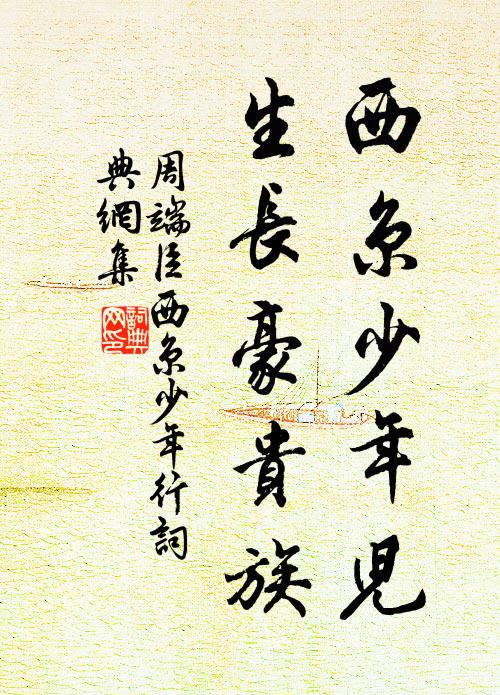 西京少年兒
生長豪貴族
周端臣西京少年行詞
典網集
詞典網印